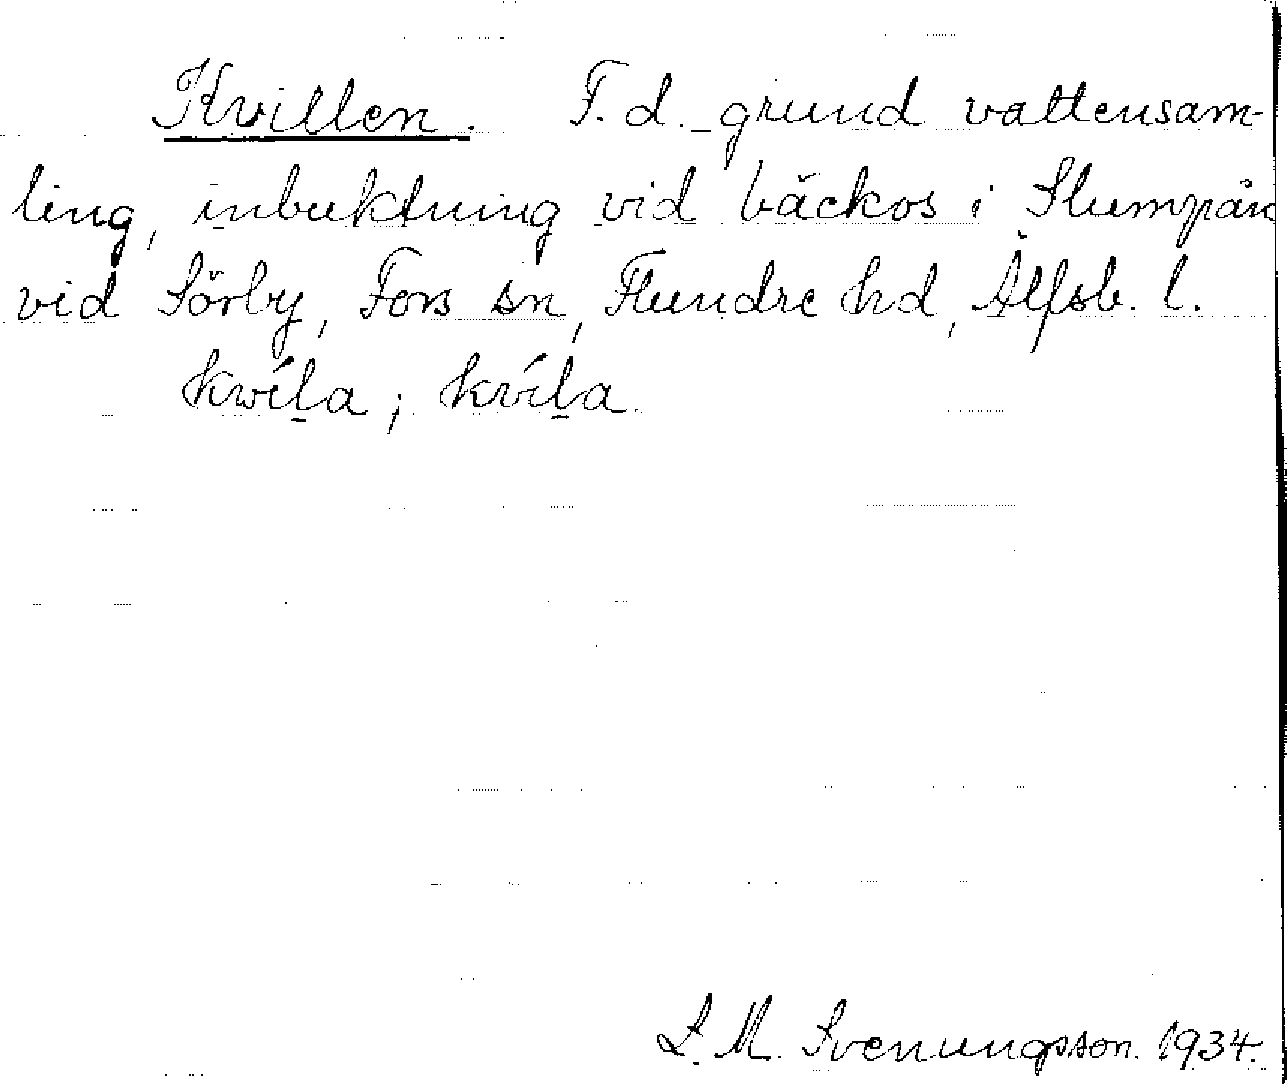 Kvillen. F. d. grund vattensam-
ling, inbuktning vid bäckos i Slumpån
vid Sörby, Fors sn, Flundre hd, Älfsb. l.
kwíḻa; kvíḻa
L. M. Svenungsson. 1934.